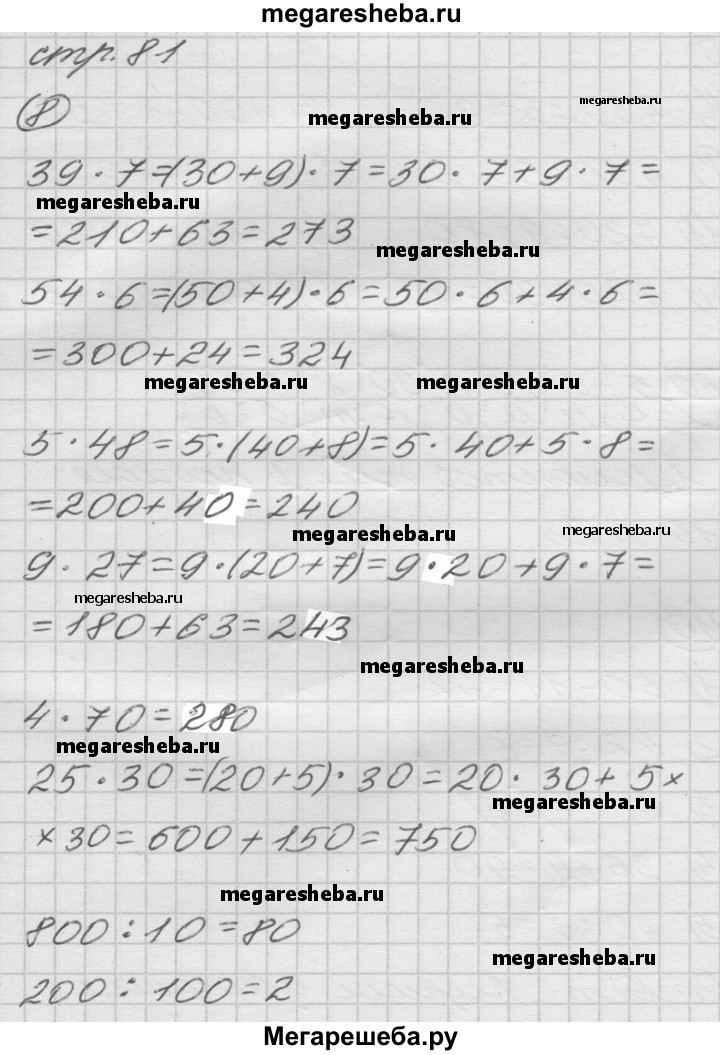 megaresheba.ru
стр. 81
megaresheba.ru
8
megaresheba.ru
39 · 7=(30+9) · 7=30 · 7+9 · 7=
megaresheba.ru
=210+63=273
megaresheba.ru
54 · 6=(50+4) · 6=50 · 6+4 · 6=
=300+24=324
megaresheba.ru megaresheba.ru
5 · 48=5 · (40+8)=5 · 40+5 · 8=
=200+40=240
megaresheba.ru megaresheba.ru
9 · 27=9 · (20+7)=9 · 20+9 · 7=
megaresheba.ru
=180+63=243
megaresheba.ru
4 · 70=280
megaresheba.ru
25 · 30=(20+5) · 30=20 · 30+5×
megaresheba.ru
×30=600+150=750
megaresheba.ru
800:10=80
megaresheba.ru
200:100=2
Мегарешеба.ру